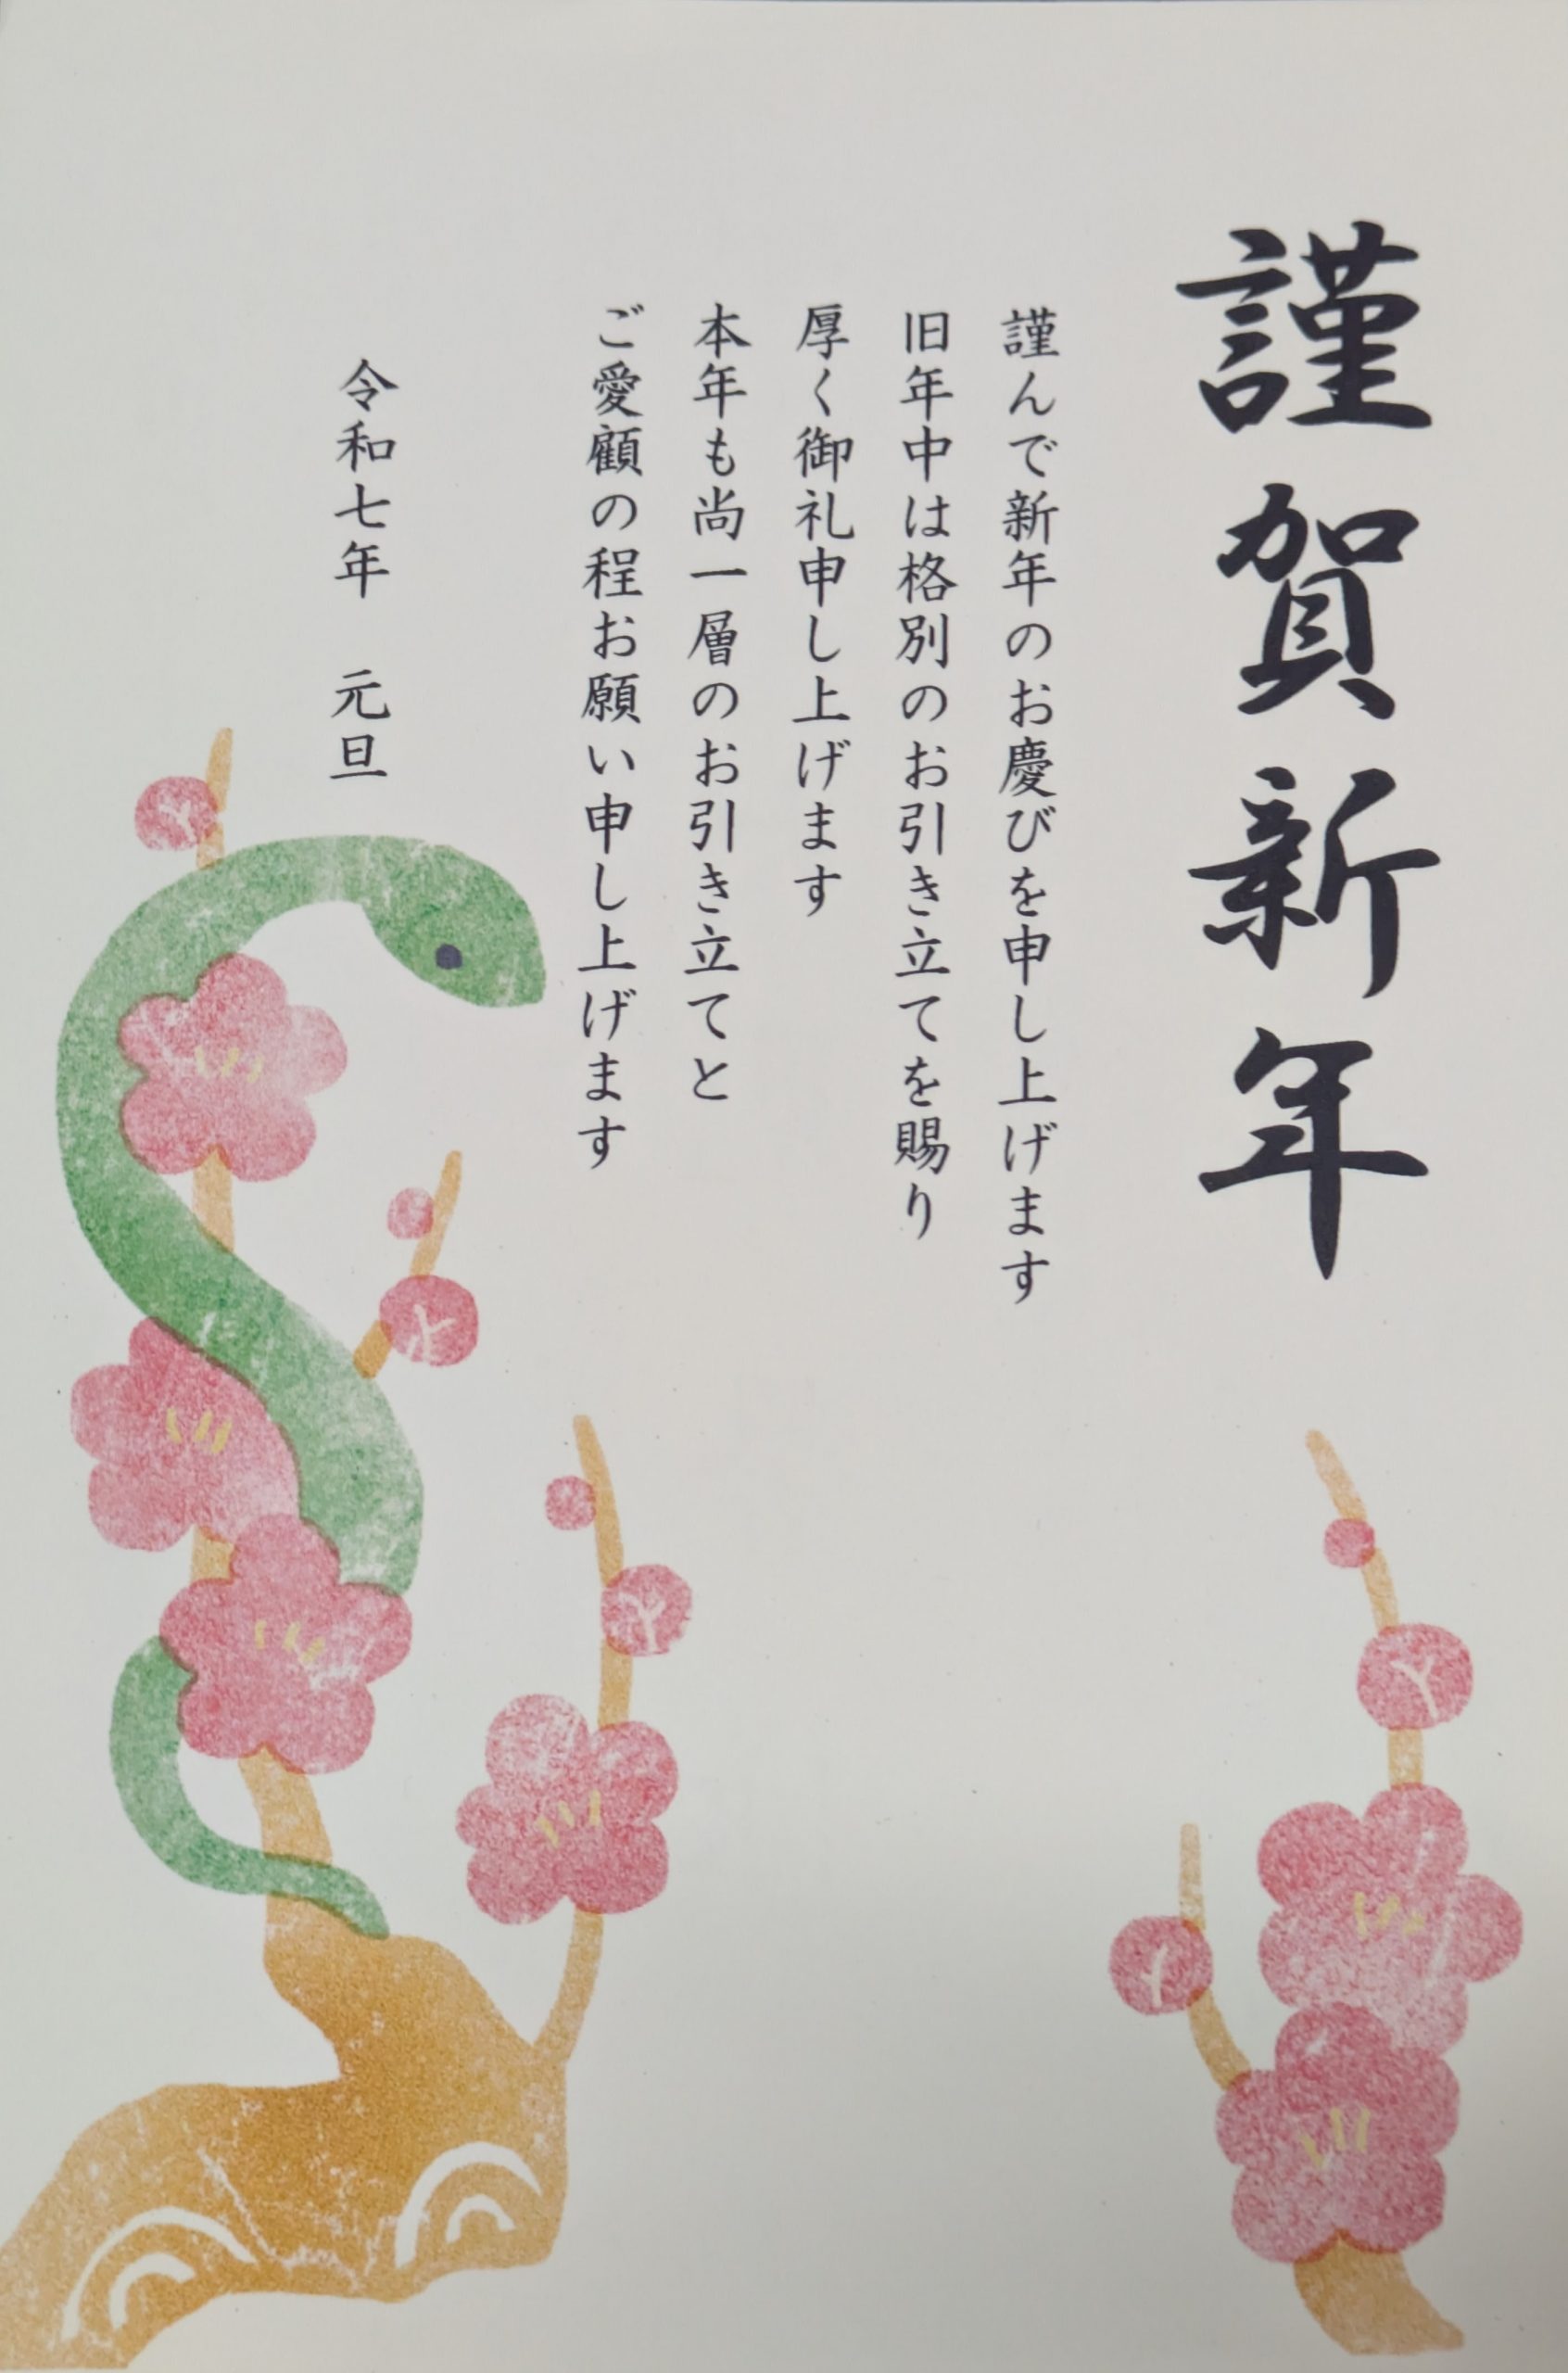 謹賀新年
謹んで新年のお慶びを申し上げます
旧年中は格別のお引き立てを賜り
厚く御礼申し上げます
本年も尚一層のお引き立てと
ご愛顧の程お願い申し上げます
令和七年　元旦